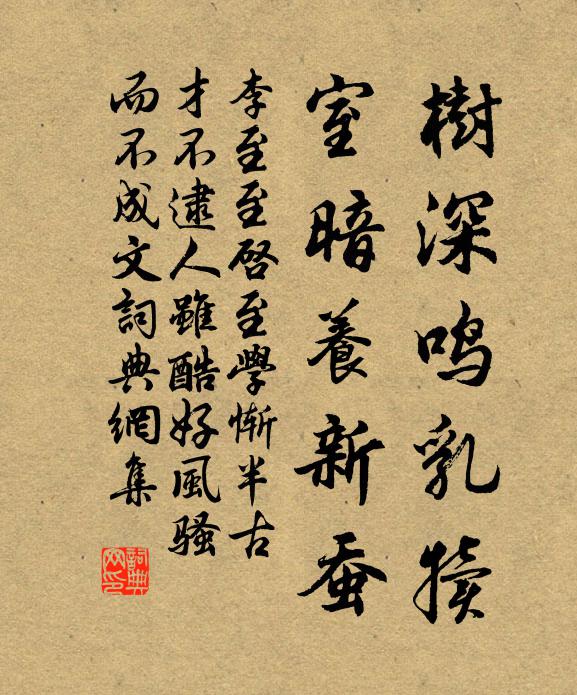 樹深鸣乳犢
室暗養新蚕
李至至啓至學慚半古
才不逮人雖酷好風骚
而不成文詞典網集
詞典网印